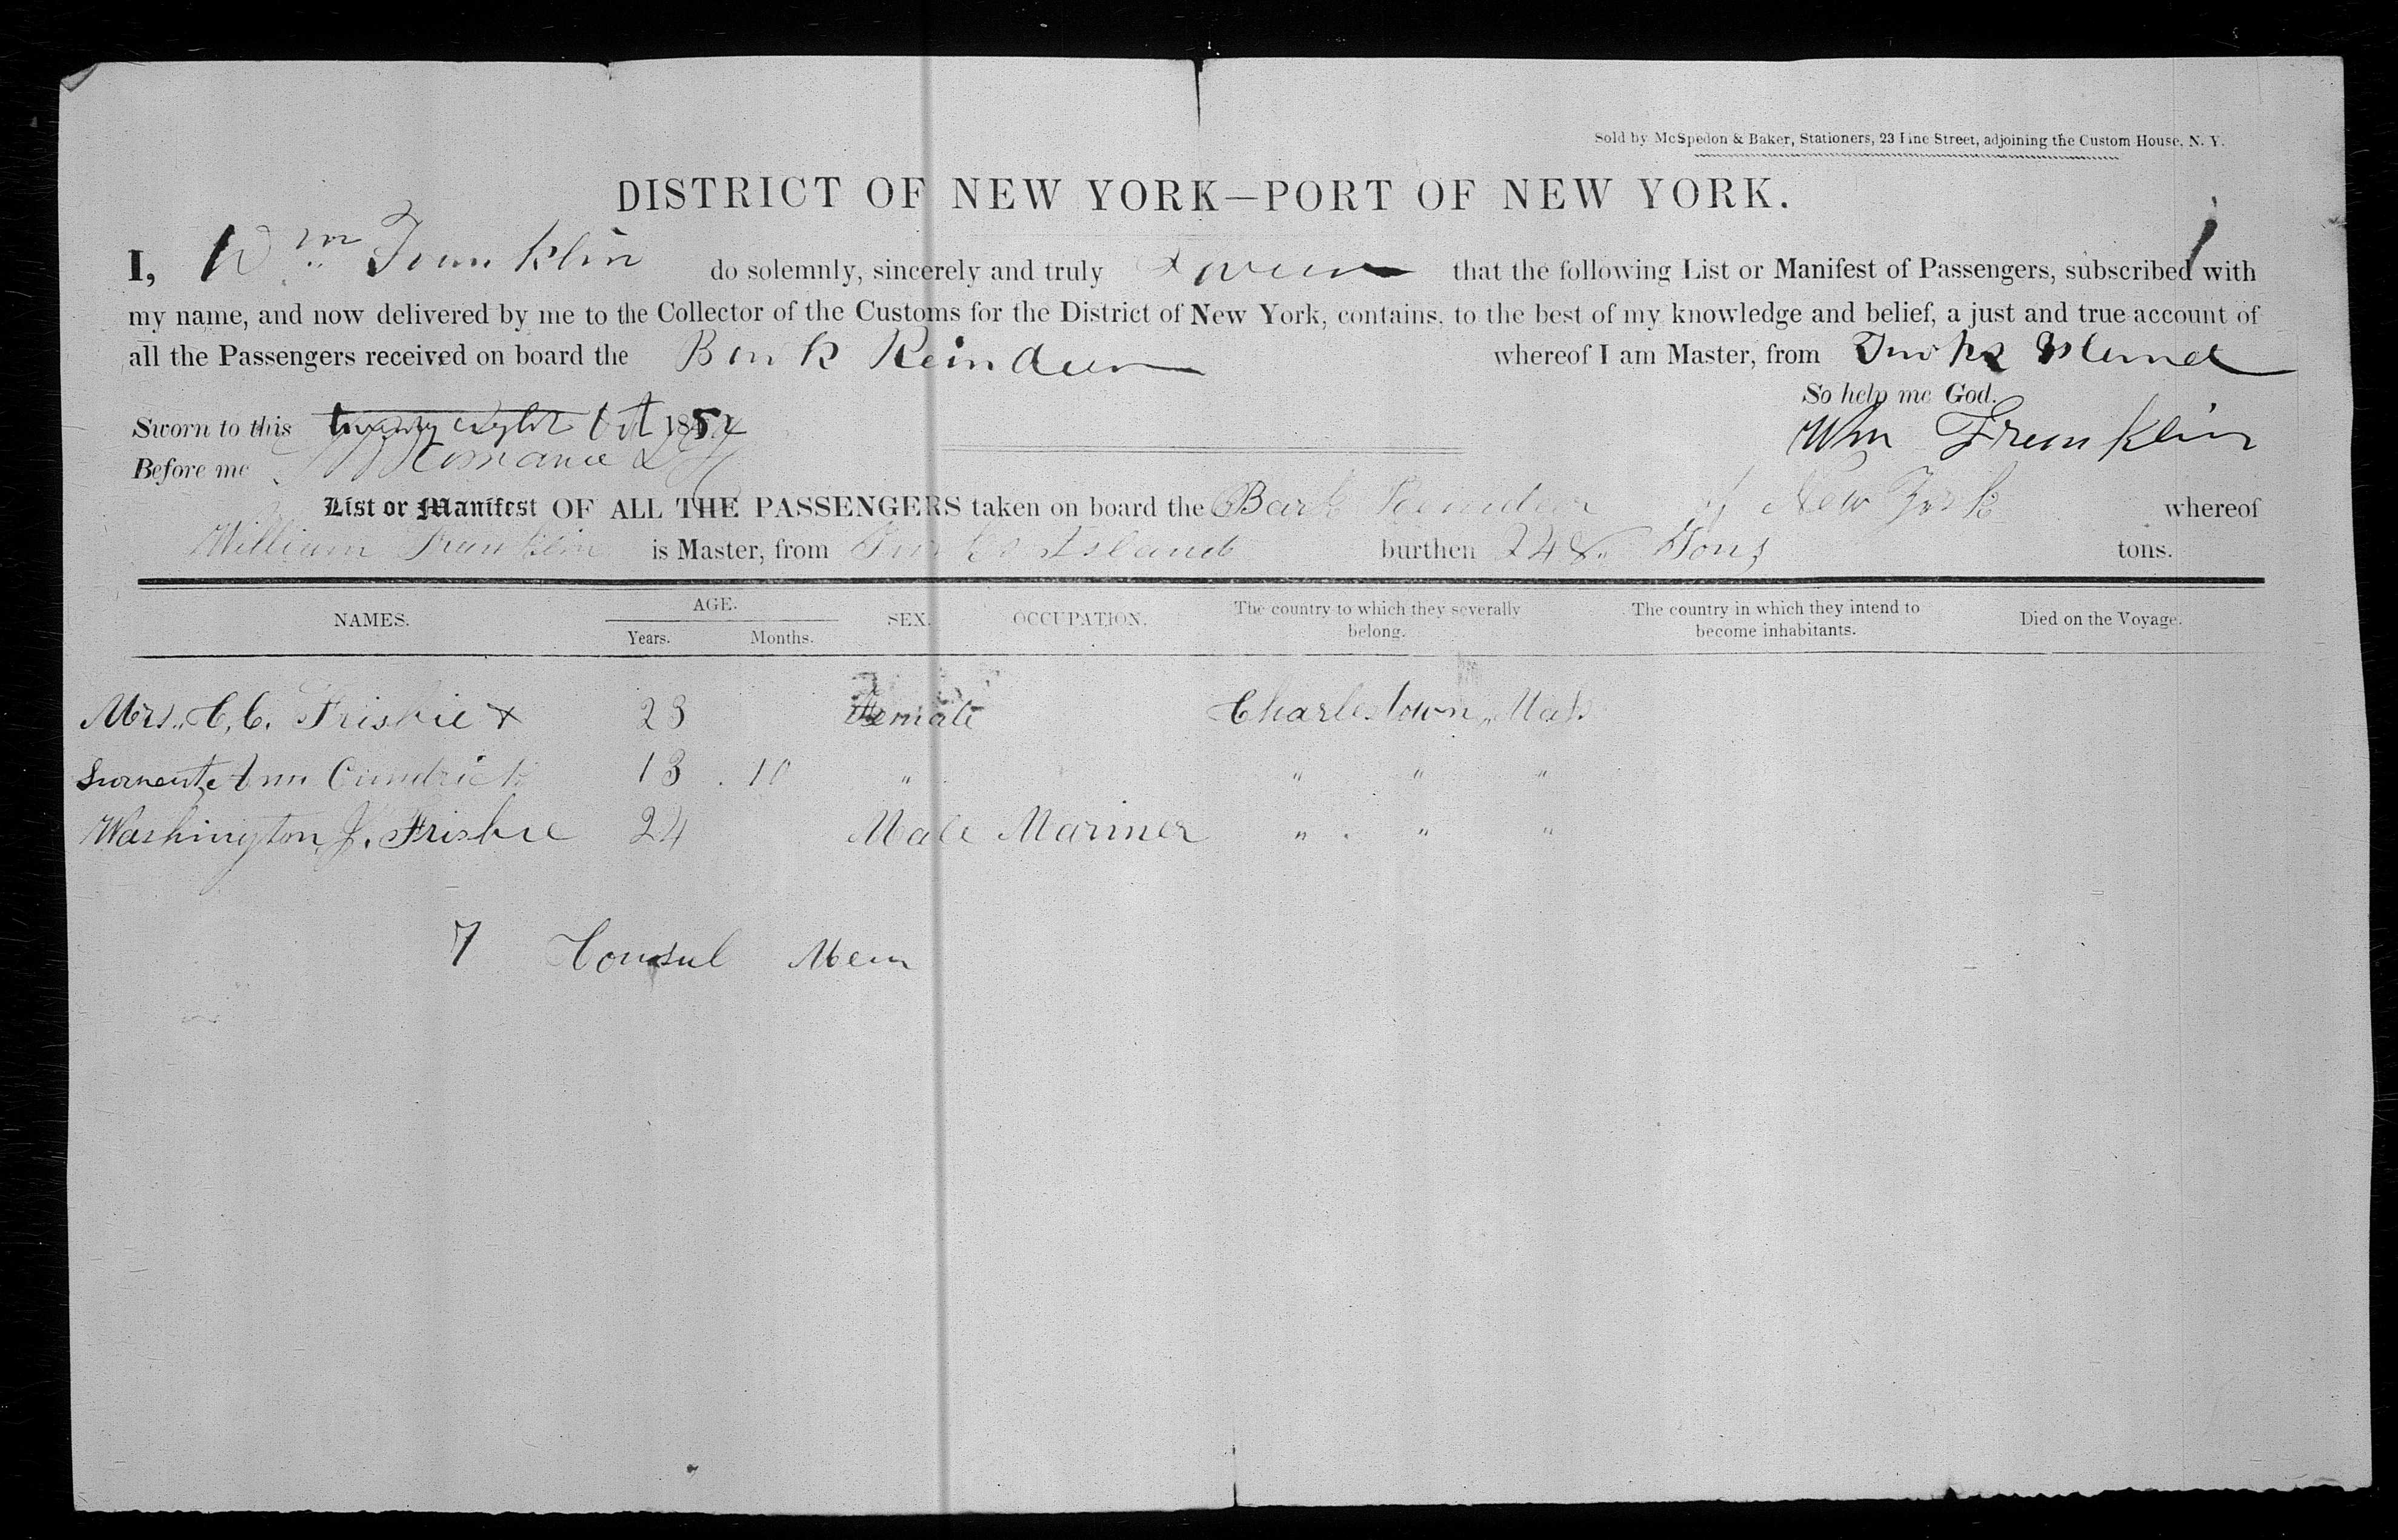 Sold by McSpedon & Baker, Stationers, 23 Pine Street, adjoining the Custom House, N. Y.
DISTRICT OF NEW YORK—PORT OF NEW YORK.
I, Wm Franklin do solemnly, sincerely and truly swear that the following List or Manifest of Passengers, subscribed with
my name, and now delivered by me to the Collector of the Customs for the District of New York, contains, to the best of my knowledge and belief, a just and true account of
all the Passengers received on board the Bark Reindeer whereof I am Master, from Turks Island
So help me God.
Sworn to this twenty eight Oct 185
Wm Franklin
Before me
List or Manifest OF ALL THE PASSENGERS taken on board the Bark Reindeer of New York whereof
William Franklin is Master, from Turks Island burthen 248 Tons tons.
NAMES. AGE. SEX. OCCUPATION. The country to which they severally belong. The country in which they intend to become inhabitants. Died on the Voyage.
Years. Months.
Mrs. C. C. Frisbie x 23 Female Charlestown, Mass
Ann 13 10 " " " "
Washington J. Frisbie 24 Male Mariner " " "
7 Consul Men